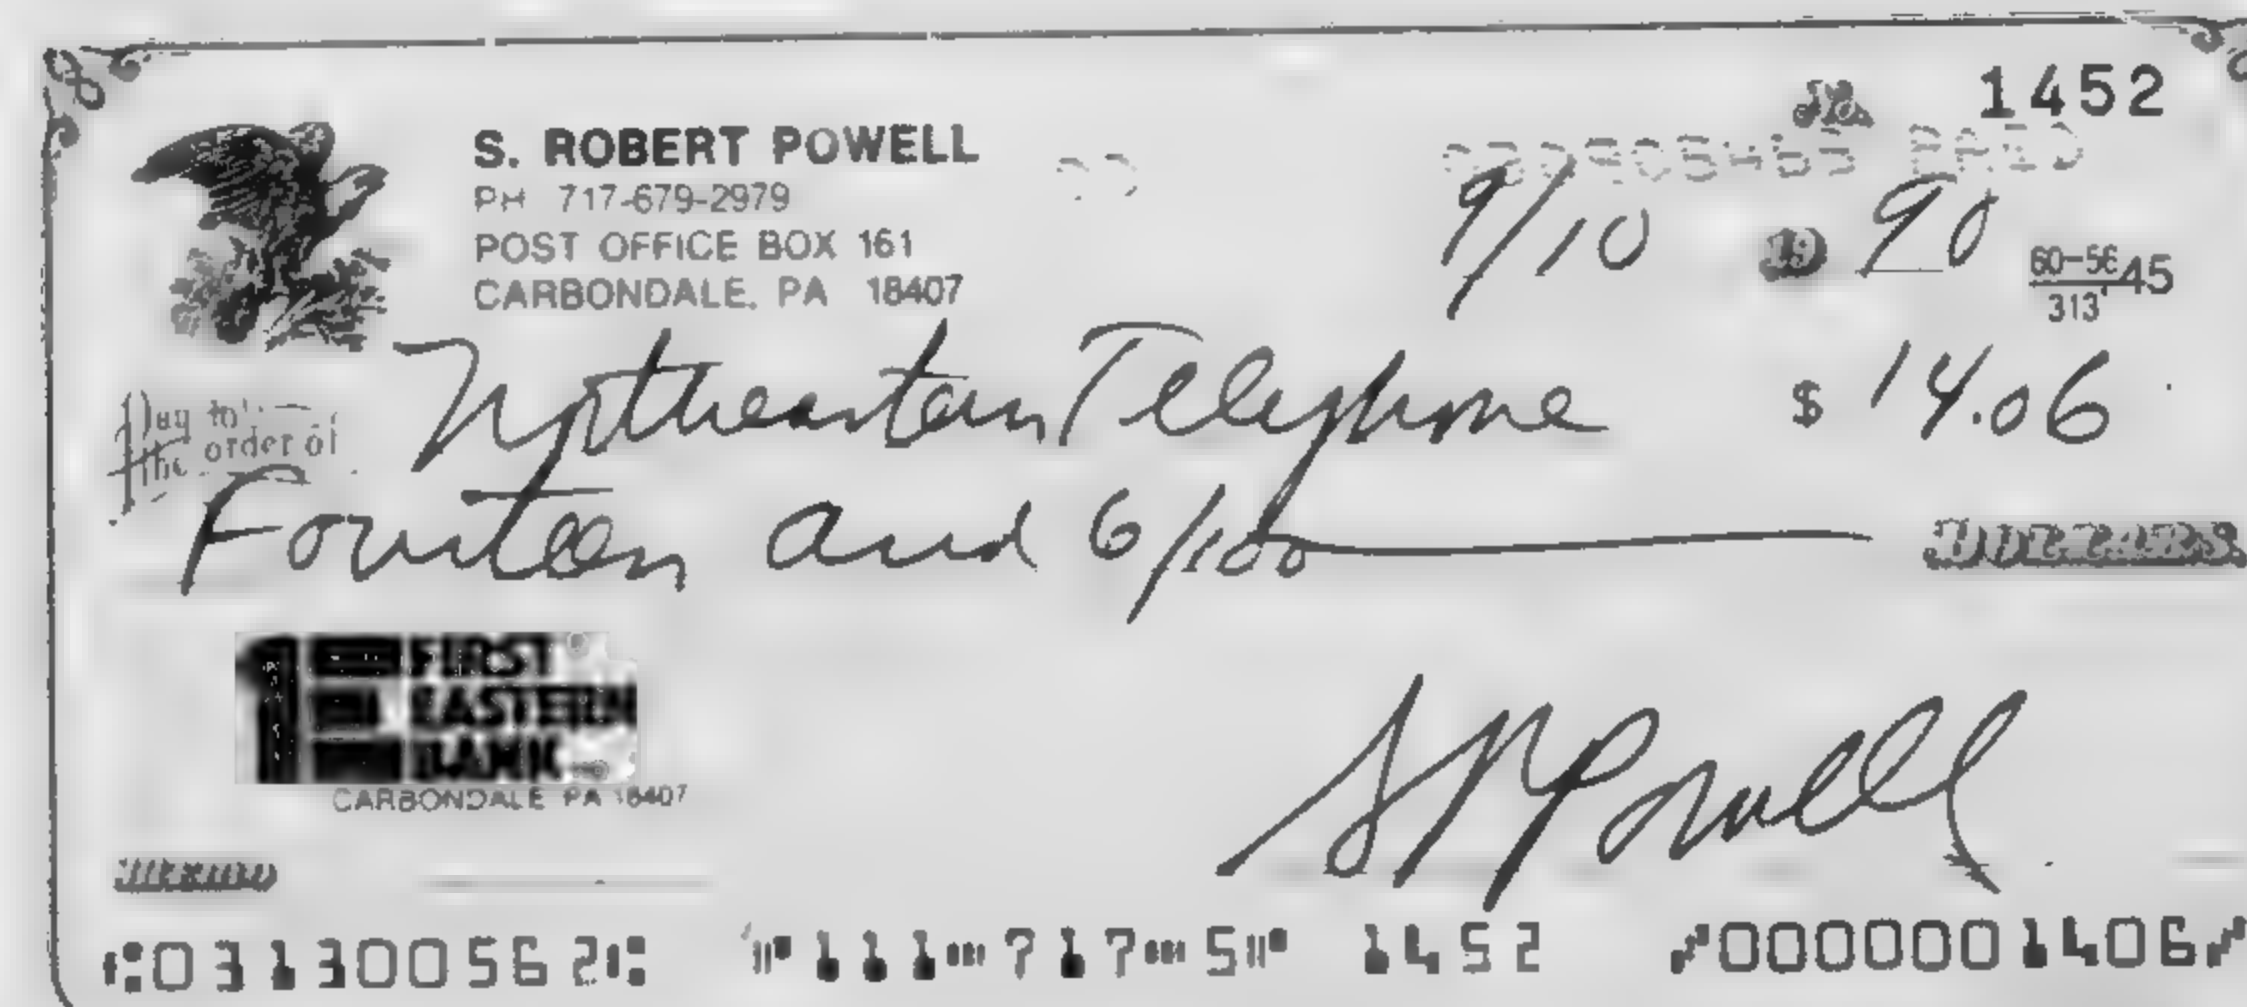 No. 1452
S. ROBERT POWELL
PH 717-679-2979
POST OFFICE BOX 161
CARBONDALE, PA 18407
PAID
9/10 19 90
60-5645
313
Pay to the order of Northeastern Telephone $ 14.06
Fourteen and 6/100 DOLLARS
FIRST
EASTERN
BANK
CARBONDALE PA 18407
S R Powell
MEMO
⑆031300562⑆ ⑈111⑉717⑉5⑈ 1452 ⑇0000001406⑇